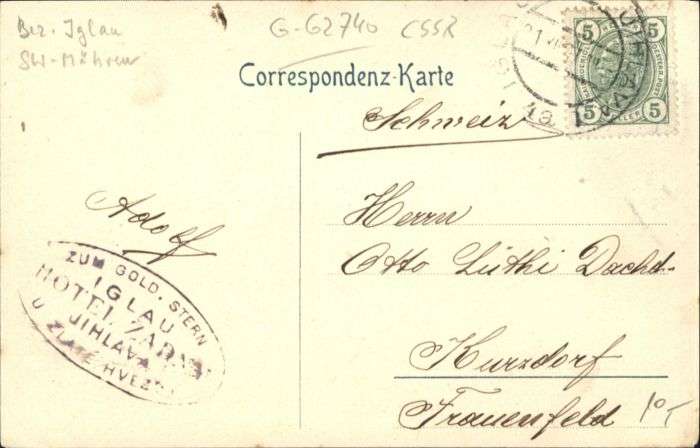 Bez. Iglau
SW-Mähren
G-62740 CSSR
Correspondenz-Karte
5 5
5 5
HELLER
JIHLAVA
IGLAU
1a
Schweiz
Adolf
Herrn
Otto Lüthi Dachd-
Kurzdorf
Frauenfeld
ZUM GOLD. STERN
IGLAU
HOTEL
JIHLAVA
U ZLATÉ HVĚZDY
10